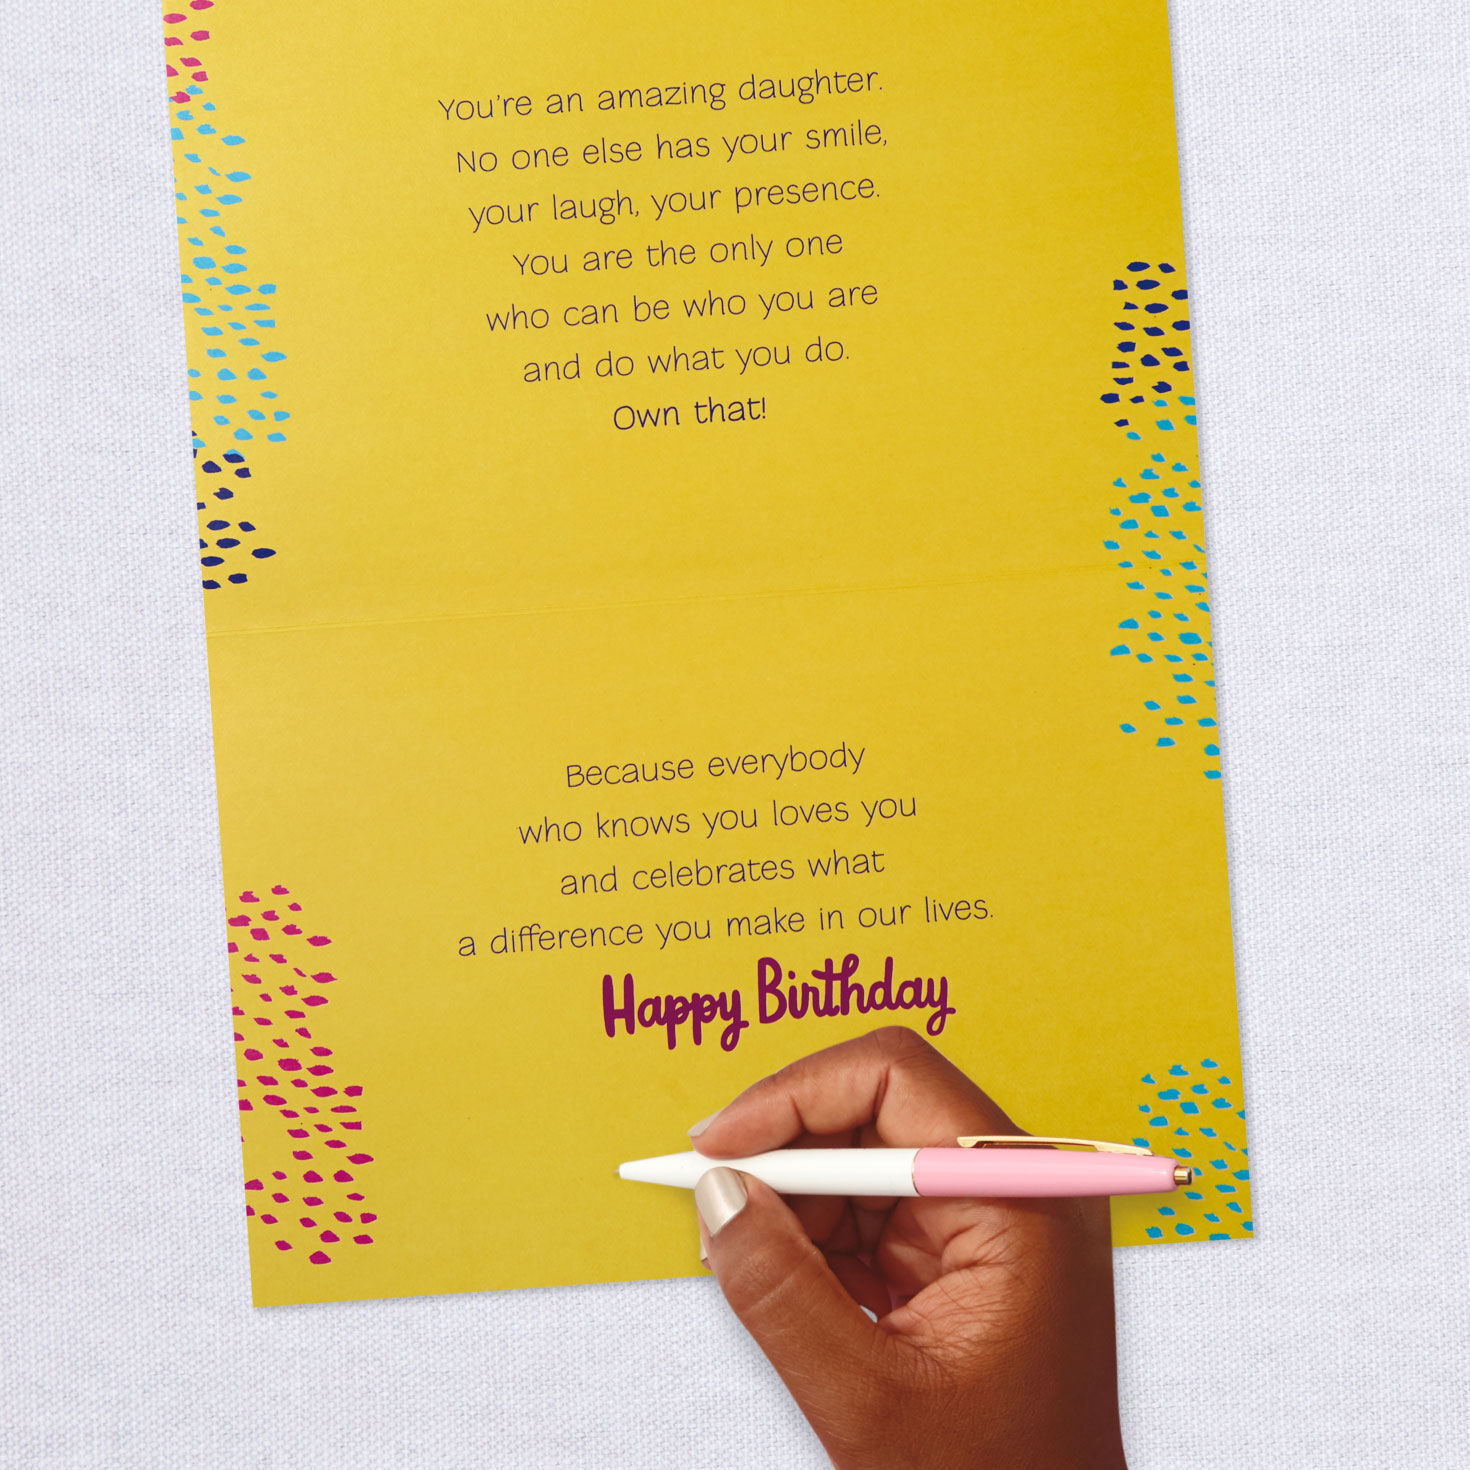 You're an amazing daughter.
No one else has your smile,
your laugh, your presence.
You are the only one
who can be who you are
and do what you do.
Own that!
Because everybody
who knows you loves you
and celebrates what
a difference you make in our lives.
Happy Birthday